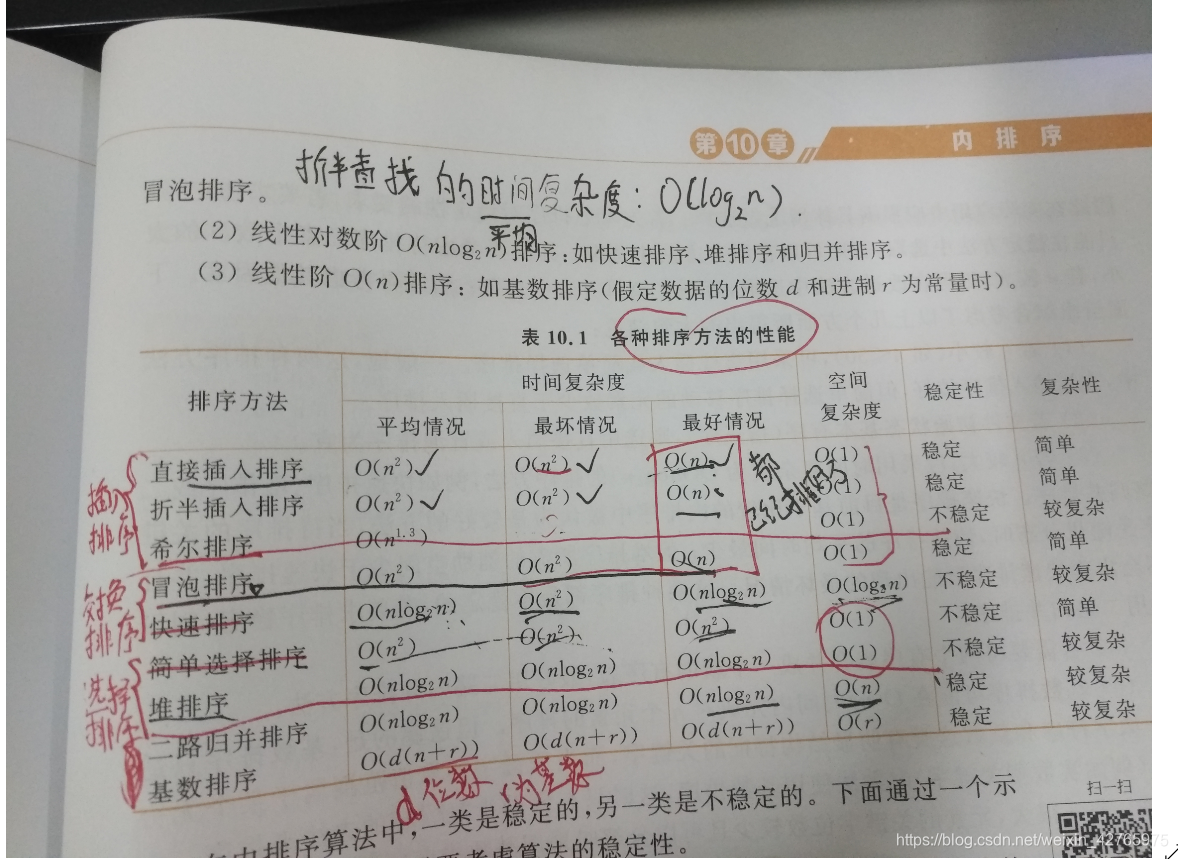 第10章 内排序
折半查找的时间复杂度：O(log₂n).
平均
冒泡排序。
（2）线性对数阶 O(nlog₂n)排序：如快速排序、堆排序和归并排序。
（3）线性阶 O(n)排序：如基数排序(假定数据的位数 d 和进制 r 为常量时)。
表 10.1 各种排序方法的性能
排序方法 时间复杂度 空间复杂度 稳定性 复杂性
平均情况 最坏情况 最好情况
直接插入排序 O(n²)✓ O(n²)✓ O(n)✓ O(1) 稳定 简单
折半插入排序 O(n²)✓ O(n²)✓ O(n) O(1) 稳定 简单
希尔排序 O(n^1.3) O(1) 不稳定 较复杂
冒泡排序 O(n²) O(n²) O(n) O(1) 稳定 简单
快速排序 O(nlog₂n) O(n²) O(nlog₂n) O(log₂n) 不稳定 较复杂
简单选择排序 O(n²) O(n²) O(n²) O(1) 不稳定 简单
堆排序 O(nlog₂n) O(nlog₂n) O(nlog₂n) O(1) 不稳定 较复杂
二路归并排序 O(nlog₂n) O(nlog₂n) O(nlog₂n) O(n) 稳定 较复杂
基数排序 O(d(n+r)) O(d(n+r)) O(d(n+r)) O(r) 稳定 较复杂
插入排序
交换排序
选择排序
都已经排
d位数 r为基数
内排序算法中,一类是稳定的,另一类是不稳定的。下面通过一个示
考虑算法的稳定性。
扫一扫
https://blog.csdn.net/weixin_42765975